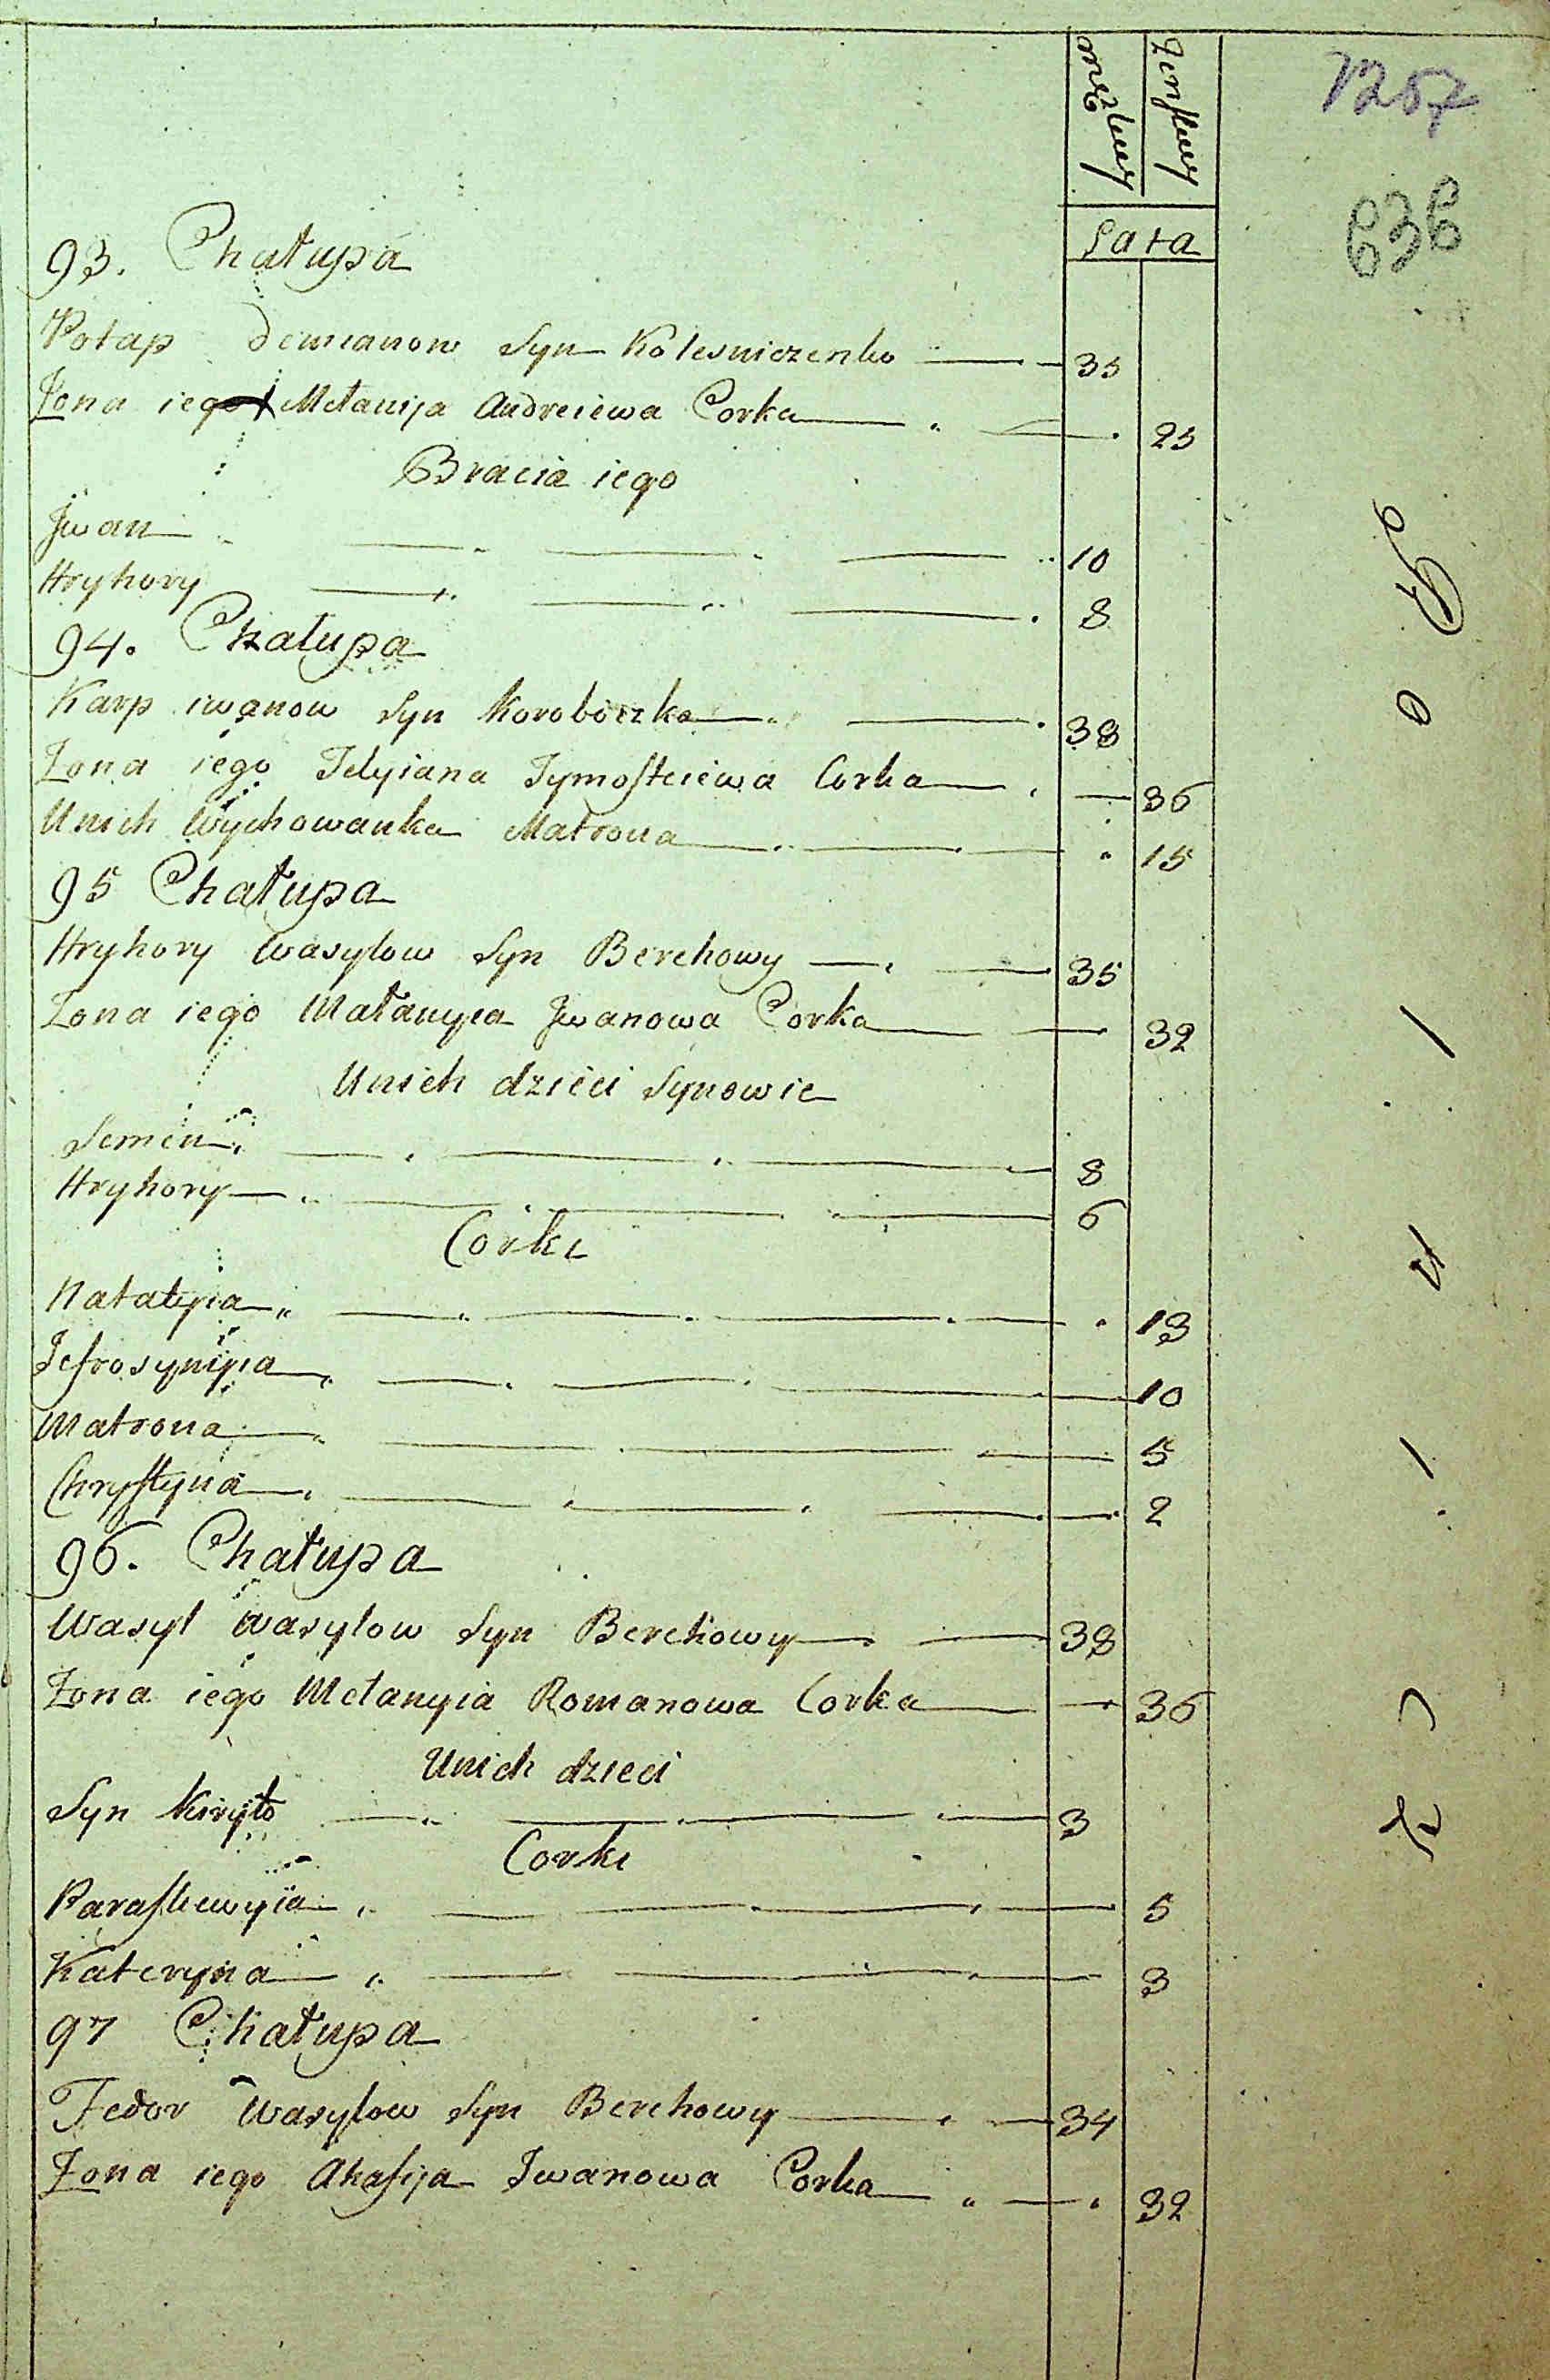 męzkiey żenskiey
1257
636
Lata
93. Chałupa
Potap Demianow Syn Kolesniczenko 35
Żona iego Mełanija Andreiewa Corka 25
Bracia iego
Jwan 10
Hryhory 8
94. Chałupa
Karp iwanow Syn Koroboczka 38
Żona iego Tetyiana Tymofteiewa Corka 36
Unich Wychowanka Matrona 15
95 Chałupa
Hryhory Wasylow Syn Berehowy 35
Żona iego Małanyia Jwanowa Corka 32
Unich dzieci Synowie
Semen 8
Hryhory 6
Corki
Natalyia 13
Jefrosyniyia 10
Matrona 5
Chrystyna 2
96. Chałupa
Wasyl wasylow Syn Berehowy 38
Żona iego Mełanyia Romanowa Corka 36
Unich dzieci
Syn Kiryło 3
Corki
Paraskewyia 5
Kateryna 3
97 Chałupa
Fedor Wasylow Syn Berehowy 34
Żona iego Ahafija Iwanowa Corka 32